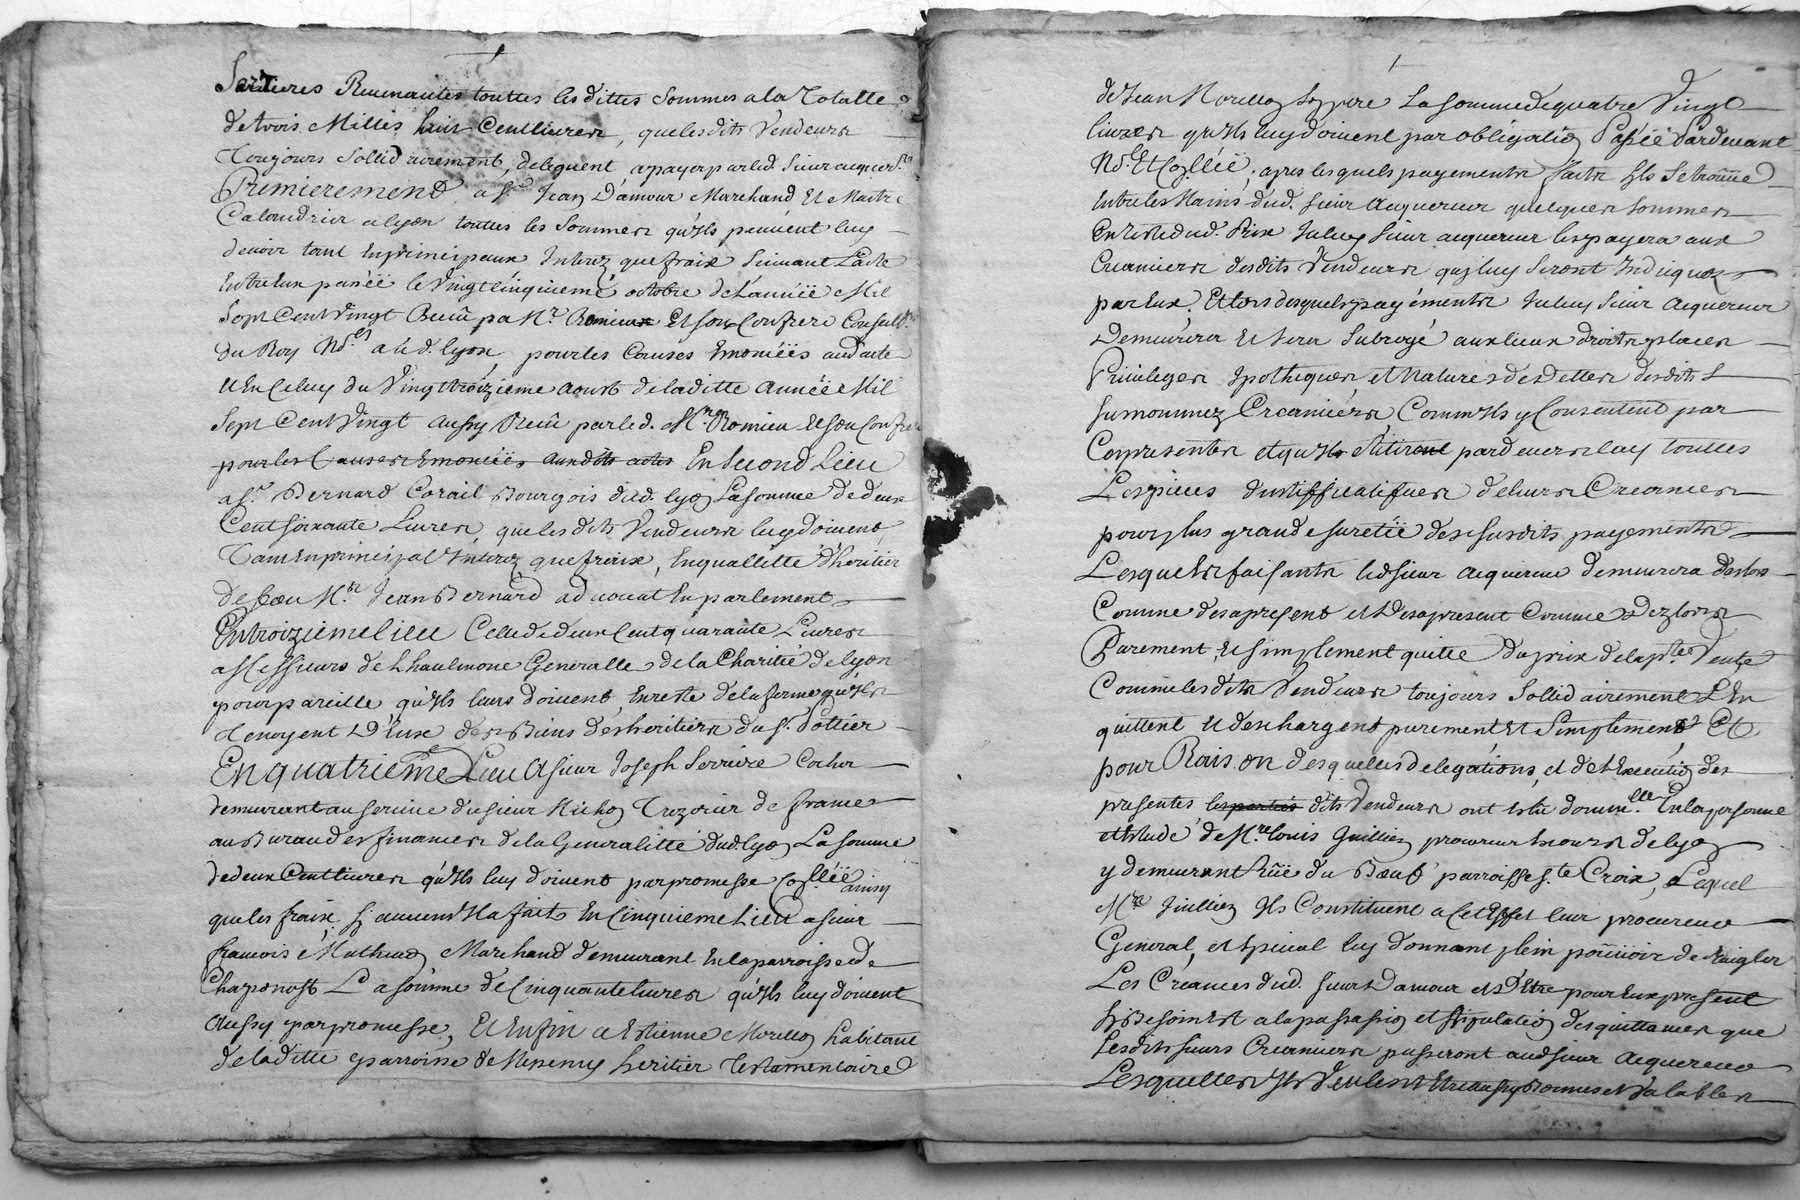 Revenantes touttes les dittes sommes a la Totalle
de trois Milles huit Cent livres, que les dits Vendeurs
Toujours Sollidairement, deleguent, a payer par led. Sieur acquer.r
Premierement a Sr. Jean D'amour Marchand Et Maitre
Calandrier a lyon touttes les Sommes qu'ils peuvent luy
devoir tant En principaux Interez que fraix Suivant L'acte
Entre Eux passé le Vingt cinquieme octobre de L'année Mil
Sept Cent Vingt Receu pa Mr. Romieux Et son Confrere Conseil.rs
du Roy No.res a lad. lyon, pour les Causes Enoncéës aud. acte
Et En Celuy du Vingt troizieme aoust de laditte Année Mil
Sept Cent Vingt aussy Receu par led. Mre. Romieu Et son Confre
pour les Causes Enoncéës auxdits actes En Second Lieu
a Sr. Bernard Corail Bourgois dud. lyon La somme de deux
Cent soixante Livres, que les dits Vendeurs luy doivent,
Tant En principal Interez que fraix, En quallitté d'heritier
de feu Mre. Jean Bernard advocat En parlement
En troizieme lieu Celle de deux Cent quarante Livres
a Messieurs de L'haulmone Generalle de la Charitié de lyon
pour pareille qu'ils leurs doivent, En reste de la ferme qu'ils
tenoyent D'Eux des Biens des heritiers du Sr. Pottier
En quatrieme Lieu A sieur Joseph Serriere Cocher
demeurant au service du sieur Tresorier de france
au Bureau des finances de la Generalitté dud. lyon La somme
de deux Cent livres qu'ils luy doivent par promesse Coll.éë ainsy
que les fraix sy aucuns Il a fait. En Cinquieme Lieu a sieur
francois Marchand demeurant En la parroisse de
Chaponost La somme de Cinquante livres qu'ils luy doivent
Aussy par promesse, Et Enfin a Estienne Morellon habitant
de laditte parroisse de Messemy heritier Testamentaire
de Jean Morellon Son pere La somme de quatre Vingt
livres qu'ils luy doivent par obligation Passéë Pardevant
No.re Et Collé, apres lesquels payements faits Ils Se trouve
Entre les Mains dud. Sieur Acquereur quelques Sommes
En reste dud. Prix Icelluy Sieur acquereur les payera aux
Creanciers desdits Vendeurs qui luy Seront Indiquez
par Eux, Et lors desquels payements Iceluy Sieur Acquereur
Demeurera Et sera Subrogé aux lieux droits places
Privileges Ipotheques et Natures des Dettes desdits
Surnommez Creanciers Comm'ils y Consentent par
Ces presentes et qu'ils retirent pardevers luy touttes
Les pieces Justifficatifves de leurs Creances
pour plus grande suretéë des susdits payements
Lesquels faisants led sieur Acquereur demeurera des lors
Comme des apresent et Des apresent Comme Dez lors
Purement, Et simplement quitte du prix de la p.te Vente
Comme les dits Vendeurs toujours Sollidairement L'En
quittent Et deschargent purement Et Simplement Et
pour Raison desquelles delegations, et de l'Execution des
presentes les parties dits Vendeurs ont Eslu domic.lle En la personne
et Estude de Mre. Louis Guillien procureur Ez cours de lyon
y demeurant Rüe du Bœuf parroisse Ste. Croix, Lequel
Mre. Guillien Ils Constituent a Cet Effet leur procureur
General, et Special luy donnant plein pouvoir de Reigler
Les Creances dud. Sieur D'amour et D'Etre pour Eux present
Sy Besoin Est a la passassion et stipulation des quittances que
Lesdits sieurs Creanciers passeront aud sieur Acquereur
Lesquelles Ils Veulent Etre aussy Bonnes et Valables